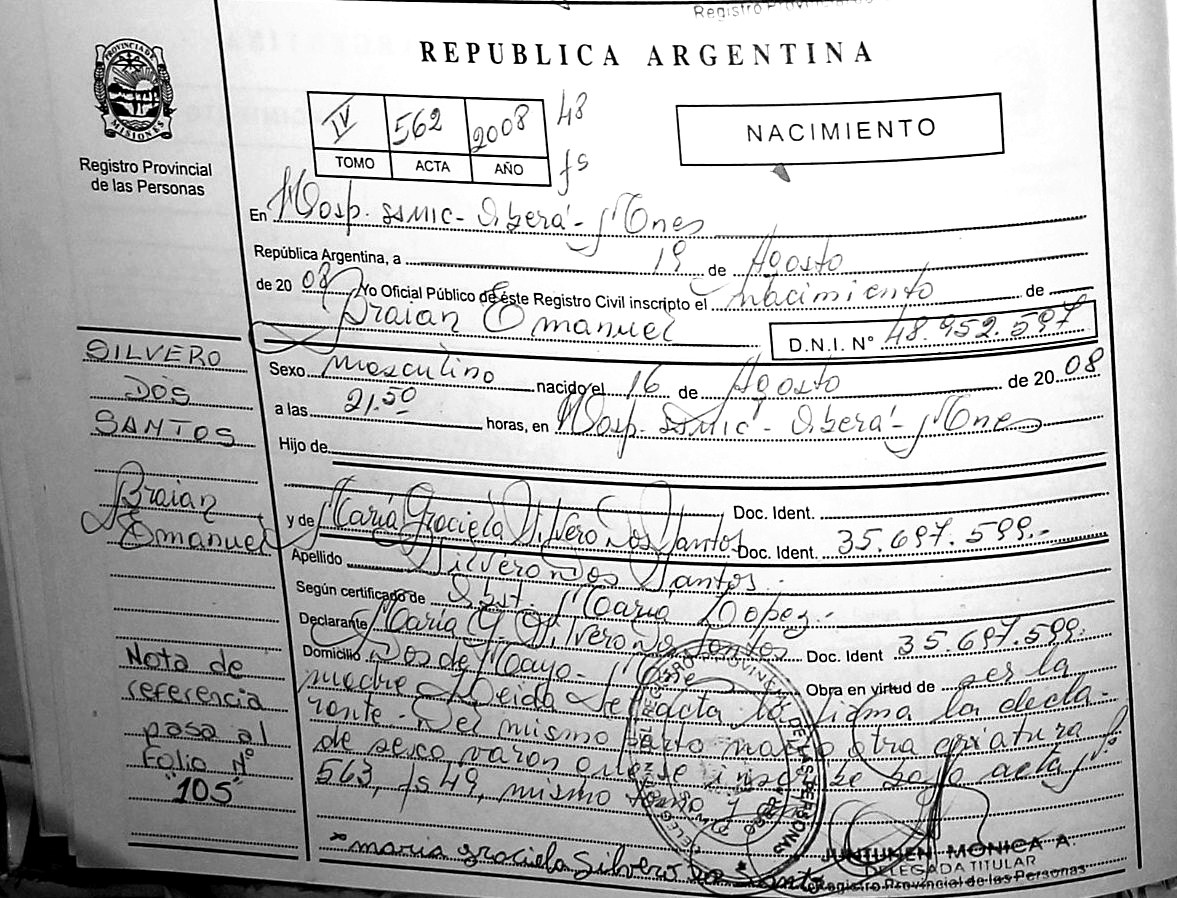 Registro Provincial de
REPUBLICA ARGENTINA
PROVINCIA DE
MISIONES
Registro Provincial
de las Personas
IV 562 2008 48
TOMO ACTA AÑO fs
NACIMIENTO
En Hosp. SSMIC - Oberá - Mnes
República Argentina, a 19 de Agosto
de 20 08 Yo Oficial Público de este Registro Civil inscripto el nacimiento de
Braian Emanuel
D.N.I. N° 48.952.597
SILVERO
DOS
SANTOS
Braian
Emanuel
Sexo masculino nacido el 16 de Agosto de 20 08
a las 21.50 horas, en Hosp. SSMIC - Oberá - Mnes
Hijo de
Doc. Ident.
y de María Graciela Silvero Dos Santos Doc. Ident. 35.697.599.-
Apellido Silvero Dos Santos.-
Según certificado de Obst. María Lopez.-
Declarante María G. Silvero Dos Santos Doc. Ident 35.697.599.
Domicilio Dos de Mayo - Mnes Obra en virtud de ser la
madre Leida el acta la firma la decla-
rante - Del mismo parto nació otra criatura
de sexo varon que se inscribe bajo acta N°
563, fs 49, mismo tomo y
Nota de
referencia
pasa al
Folio N°
"105"
maria graciela Silvero Dos Santos
JUNTUNEN MONICA A.
DELEGADA TITULAR
Registro Provincial de las Personas